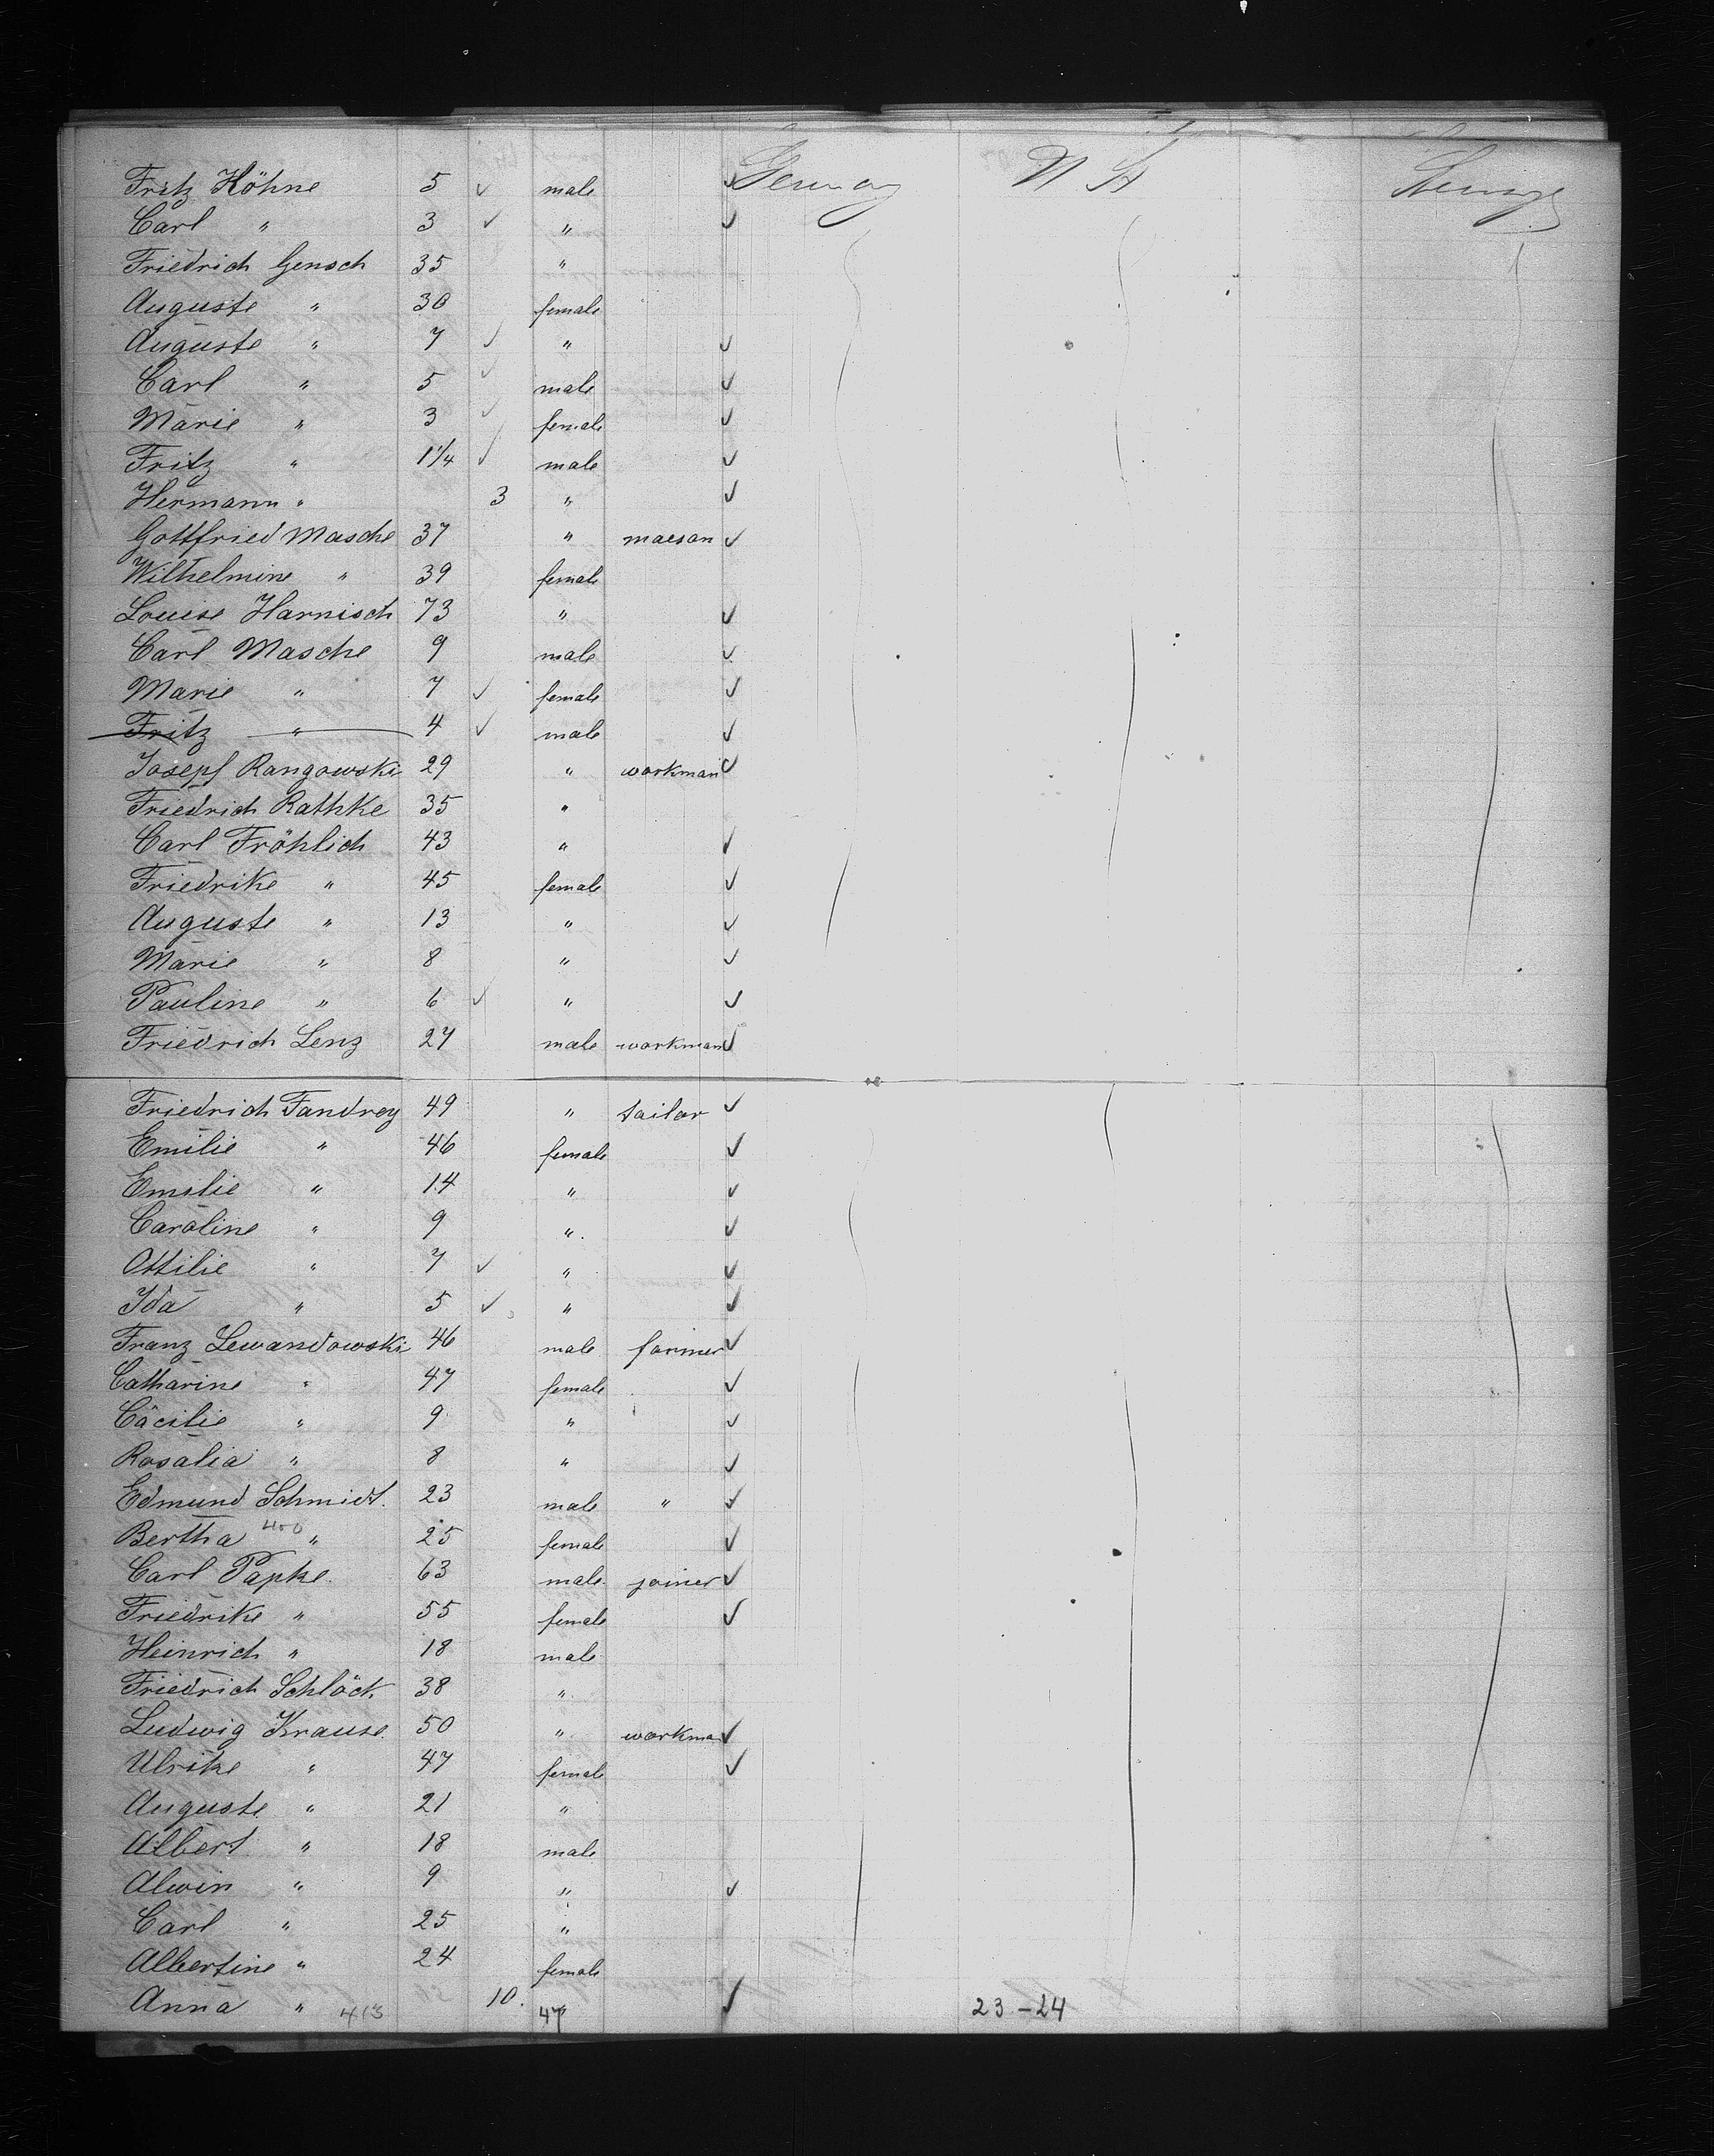 Fritz Höhne 5 ✓ male ✓ Germany U St Steerage
Carl " 3 ✓ " ✓
Friedrich Gensch 35 "
Auguste " 30 female
Auguste " 7 ✓ " ✓
Carl " 5 ✓ male ✓
Marie " 3 ✓ female ✓
Fritz " 1 1/4 ✓ male ✓
Hermann " 3 " ✓
Gottfried Masche 37 " maesan ✓
Wilhelmine " 39 female
Louise Harnisch 73 " ✓
Carl Masche 9 male ✓
Marie " 7 ✓ female ✓
Fritz " 4 ✓ male ✓
Josepf Rangowski 29 " workman ✓
Friedrich Rathke 35 "
Carl Fröhlich 43 " ✓
Friedrike " 45 female ✓
Auguste " 13 " ✓
Marie " 8 " ✓
Pauline " 6 ✓ " ✓
Friedrich Lenz 27 male workman ✓
Friedrich Fandrey 49 " tailor ✓
Emilie " 46 female ✓
Emilie " 14 " ✓
Caroline " 9 " ✓
Ottilie " 7 ✓ " ✓
Ida " 5 ✓ " ✓
Franz Lewandowski 46 male farmer ✓
Catharine " 47 female ✓
Cäcilie " 9 " ✓
Rosalia " 8 " ✓
Edmund Schmidt. 23 male " ✓
Bertha 400 " 25 female ✓
Carl Papke. 63 male. joiner ✓
Friedrike " 55 female ✓
Heinrich " 18 male
Friedrich Schlöck 38 "
Ludwig Krause. 50 " workman ✓
Ulrike " 47 female ✓
Auguste " 21 "
Albert " 18 male
Alwin " 9 " ✓
Carl " 25 "
Albertine " 24 female
Anna " 413 10. " 47 ✓ 23-24